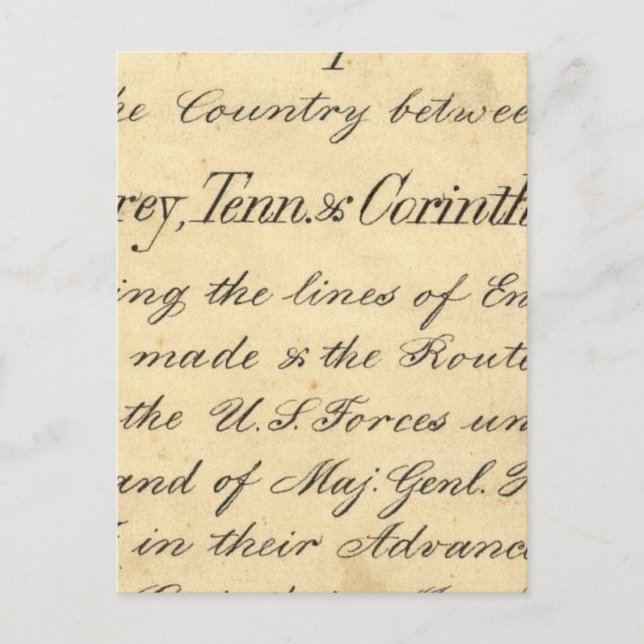 he Country betwee
rey, Tenn. & Corinth
ing the lines of En
made & the Route
the U.S. Forces un
and of Maj. Genl.
in their Advanc